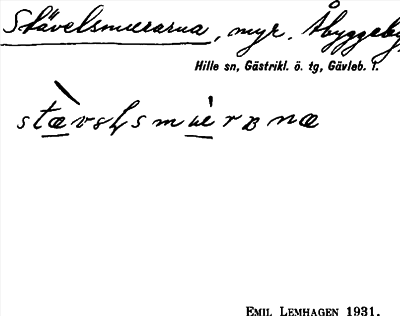 Stävelsmurarna, myr. Åbyggeby,
Hille sn, Gästrikl. ö. tg, Gävleb. l.
EMIL LEMHAGEN 1931.